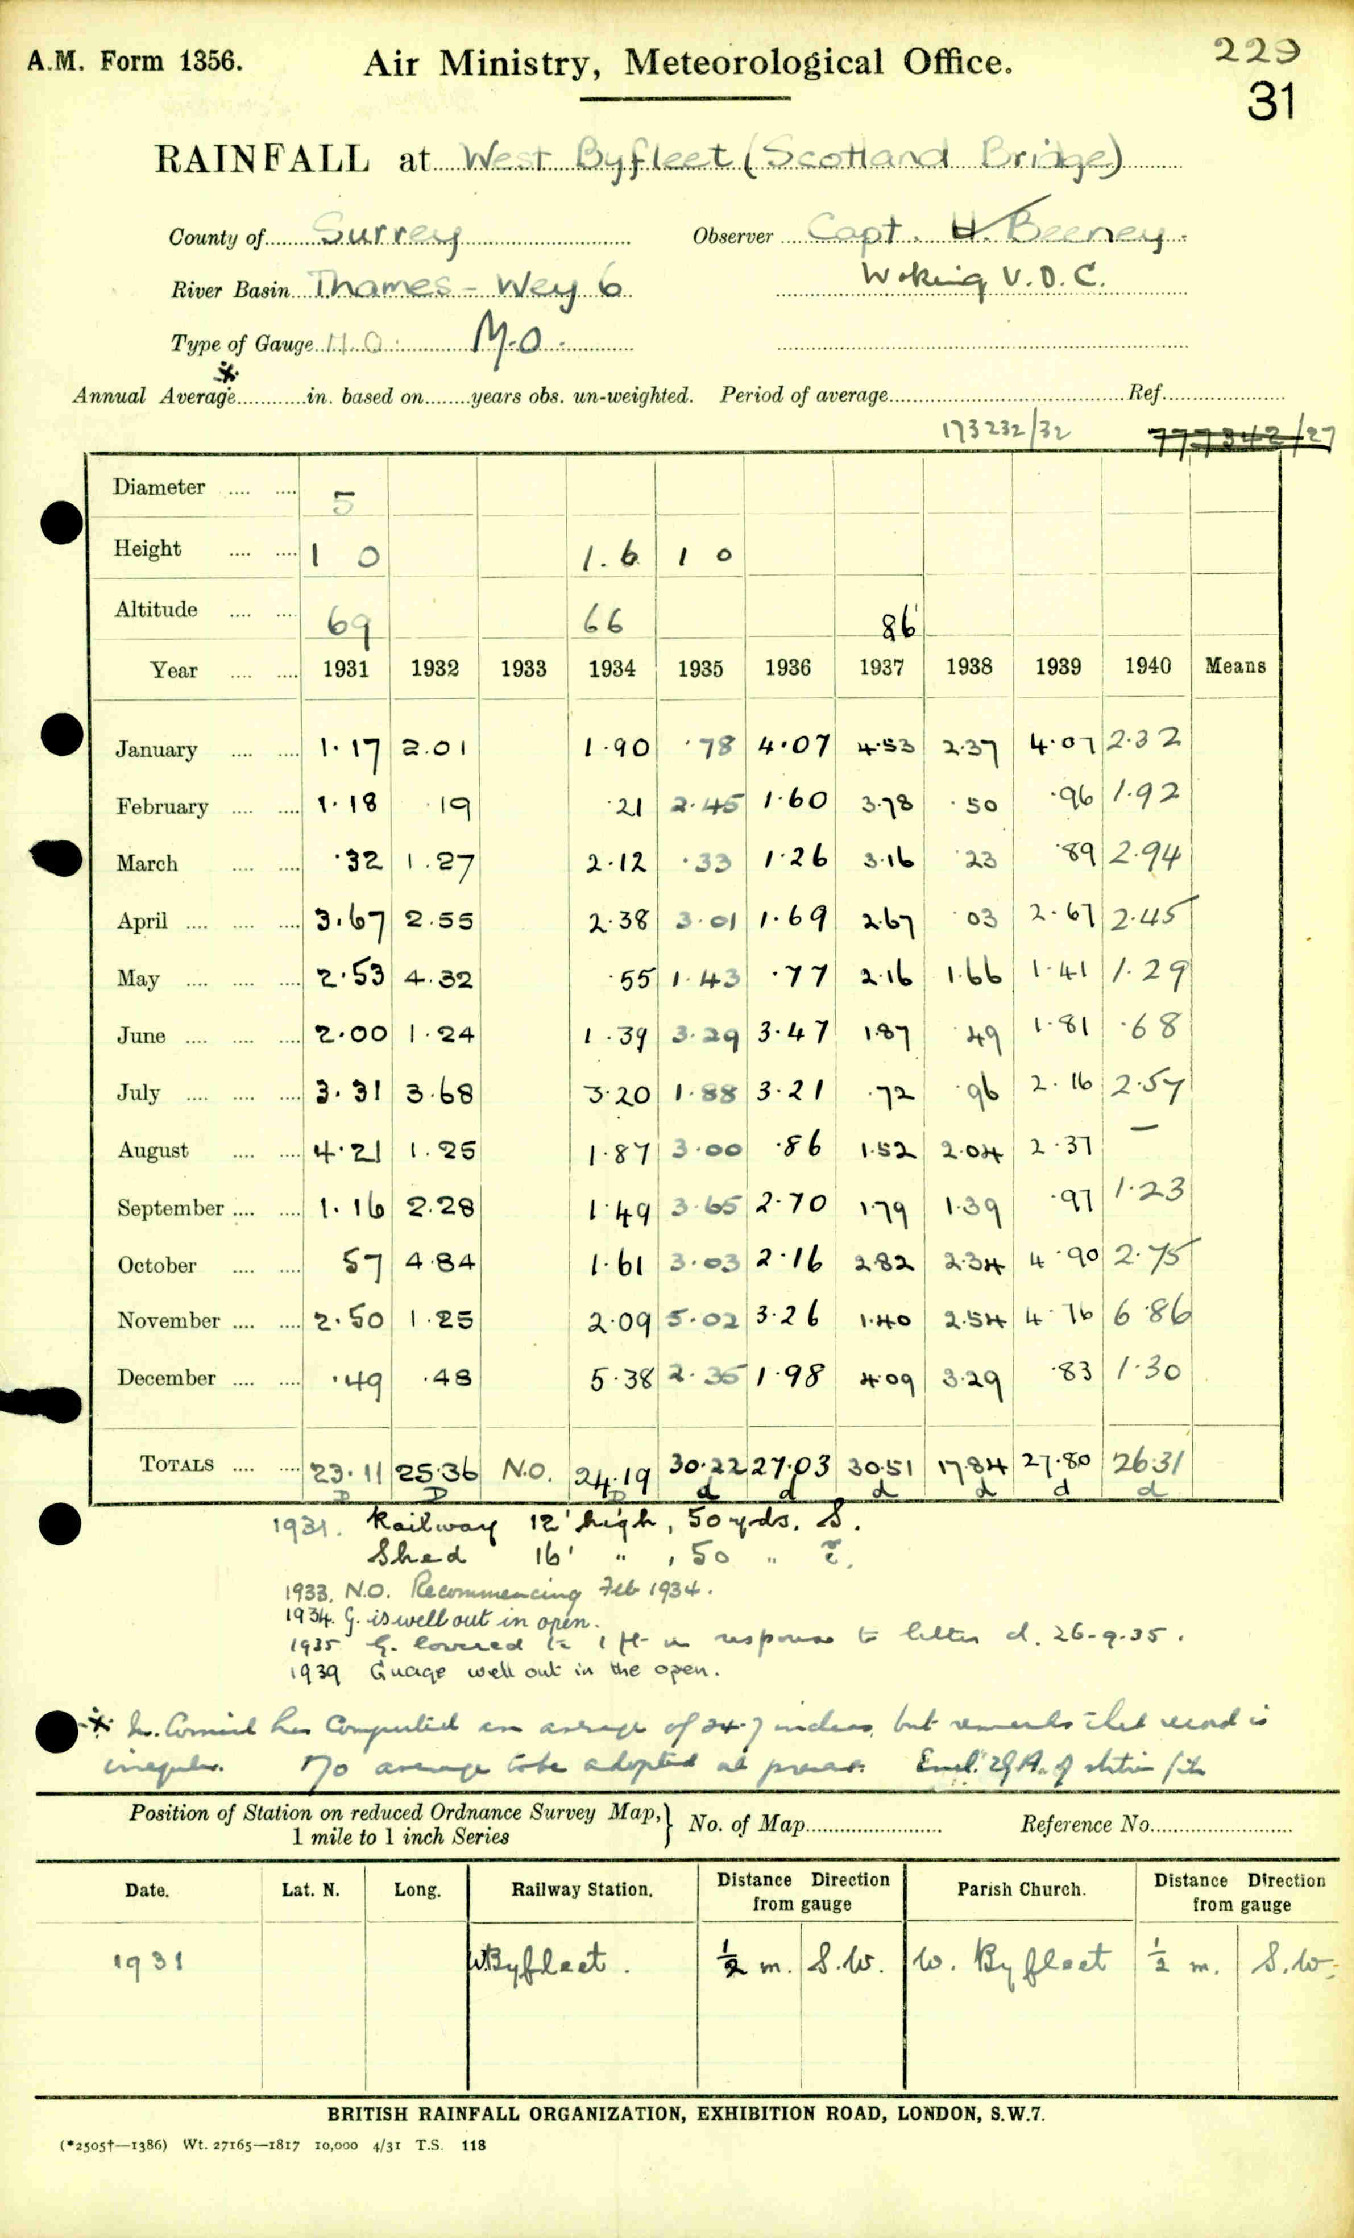 A.M. Form 1356.
Air Ministry, Meteorological Office.
229
31
RAINFALL at West Byfleet (Scotland Bridge)
County of Surrey Observer Capt. H. Beeney.
River Basin Thames - Wey 6 Woking U.D.C.
Type of Gauge M.O. M.O.
Annual Average * in. based on years obs. un-weighted. Period of average Ref.
173232/32 777342/27
Diameter 5
Height 1 0 1.6 1 0
Altitude 69 66 86'
Year 1931 1932 1933 1934 1935 1936 1937 1938 1939 1940 Means
January 1.17 2.01 1.90 .78 4.07 4.53 2.37 4.07 2.32
February 1.18 .19 .21 2.45 1.60 3.78 .50 .96 1.92
March .32 1.27 2.12 .33 1.26 3.16 .23 .89 2.94
April 3.67 2.55 2.38 3.01 1.69 2.67 .03 2.67 2.45
May 2.53 4.32 .55 1.43 .77 2.16 1.66 1.41 1.29
June 2.00 1.24 1.39 3.29 3.47 1.87 .49 1.81 .68
July 3.31 3.68 3.20 1.88 3.21 .72 .96 2.16 2.57
August 4.21 1.25 1.87 3.00 .86 1.52 2.04 2.37 —
September 1.16 2.28 1.49 3.65 2.70 1.79 1.39 .97 1.23
October 57 4.84 1.61 3.03 2.16 2.82 2.34 4.90 2.75
November 2.50 1.25 2.09 5.02 3.26 1.40 2.54 4.76 6.86
December .49 .48 5.38 2.35 1.98 4.09 3.29 .83 1.30
TOTALS 23.11 25.36 N.O. 24.19 30.22 27.03 30.51 17.84 27.80 26.31
D D D d d d d d d
1931. Railway 12' high, 50 yds. S.
Shed 16' " , 50 " E.
1933. N.O. Recommencing Feb 1934.
1934. G. is well out in open.
1935 G. lowered to 1 ft in response to letter d. 26-9-35.
1939 Guage well out in the open.
* has computed an average of 24.7 inches, but remarks that record is
irregular. No average to be adopted at present. Encl. 29A of station file
Position of Station on reduced Ordnance Survey Map, 1 mile to 1 inch Series } No. of Map Reference No.
Date. Lat. N. Long. Railway Station. Distance Direction from gauge Parish Church. Distance Direction from gauge
1931 W Byfleet. ½ m. S.W. W. Byfleet ½ m. S.W.
BRITISH RAINFALL ORGANIZATION, EXHIBITION ROAD, LONDON, S.W.7.
(*2505†—1386) Wt. 27165—1817 10,000 4/31 T.S. 118